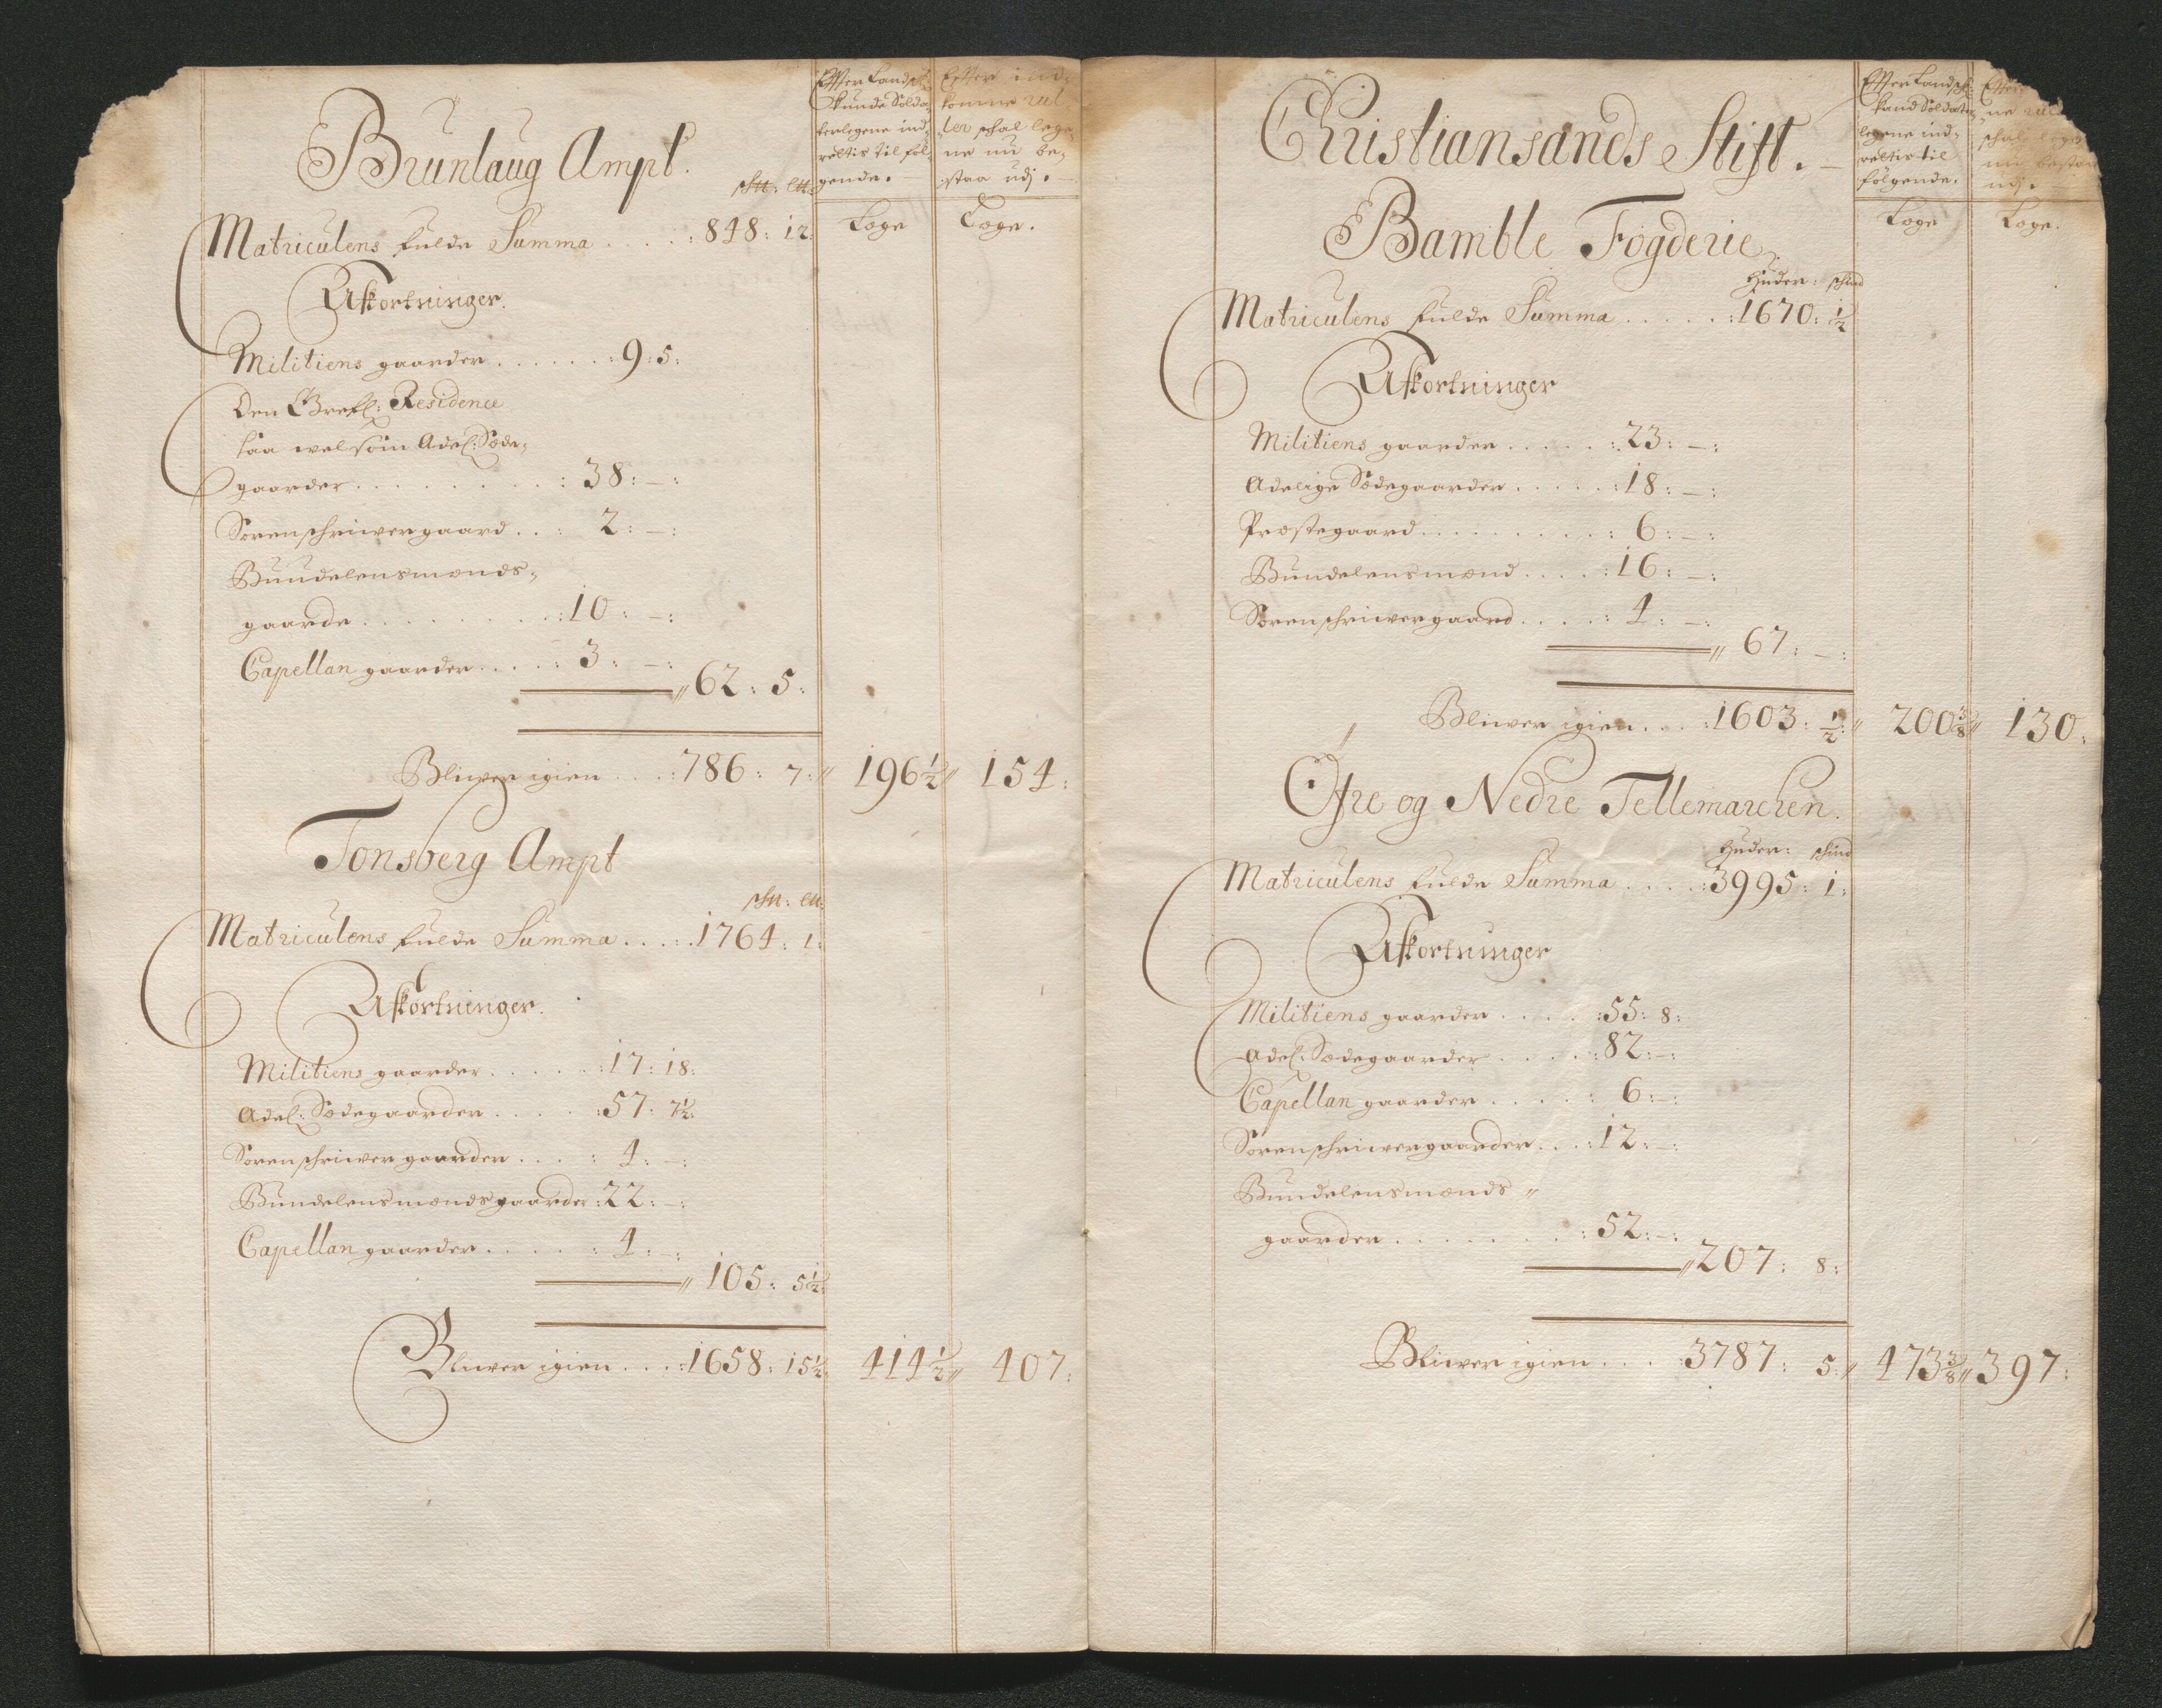 Brunlaug Ampt.
Effter Landsk:
kunde Solda¬
terlegene ind¬
reltis til føl¬
gende.
Effter ind¬
komne rul¬
ler schal lege¬
ne nu be¬
staa udj.
Matriculens fulde Summa . . . . . : 848: 12:
Læge
Læge.
Afkortninger.
Militiens gaarder . . . . . . : 9: 5:
Den Grefl: Residence
saa welsom Adel: Sæde¬
gaarder . . . . . . . . . : 38: –:
Sorenschriwergaard . . : 2: –:
Bundelensmends¬
gaarde . . . . . . . . . : 10: –:
Capellan gaarder . . . . : 3: –:
62: 5:
Bliwer igien . . . : 786: 7: 196½ 154:
Tonsberg Ampt
Matriculens fulde Summa . . . . : 1764: 1:
Afkortninger.
Militiens gaarder . . . . . : 17: 18:
Adel: Sædegaarder . . . . : 57: 7½:
Sorenschriwer gaarder . . . : 4: –:
Bundelensmends gaarder : 22: –:
Capellan gaarder . . . . . : 4: –:
105: 5½:
Bliwer igien . . . : 1658: 15½ 414½ 407:
Christiansands Stift.
Effter Landsk:
kund Soldater
legene ind¬
reltis til
følgende.
Effter
ne rul
schal lege
nu bestaa
udj.
Bamble Fogderie
Læge
Læge.
Huder: schind
Matriculens fulde Summa . . . . . : 1670: ½
Afkortninger
Militiens gaarder . . . . . : 23: –:
Adelige Sædegaarder . . . . . : 18: –:
Præstegaard . . . . . . . . . : 6: –:
Bundelensmend . . . . : 16: –:
Sorenschriwergaard . . . . : 4: –:
67: –:
Bliwer igien . . . : 1603: ½ 200⅜ 130:
Ofre og Nedre Tellemarchen.
Huder: schind
Matriculens fulde Summa . . . . : 3995: 1:
Afkortninger
Militiens gaarder . . . . : 55: 8:
Adel: Sædegaarder . . . . : 82: –:
Capellan gaarder . . . . . : 6: –:
Sorenschriwergaarder . . . : 12: –:
Bundelensmends
gaarder . . . . . . . . : 52: –:
207: 8:
Bliwer igien . . . . 3787: 5: 473⅜ 397: